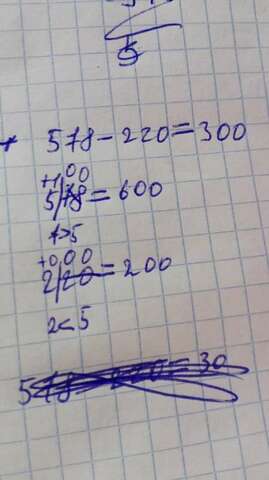 5
578-220=300
+1 00
5|78=600
7>5
+0 00
2|20=200
2<5
578 220=30